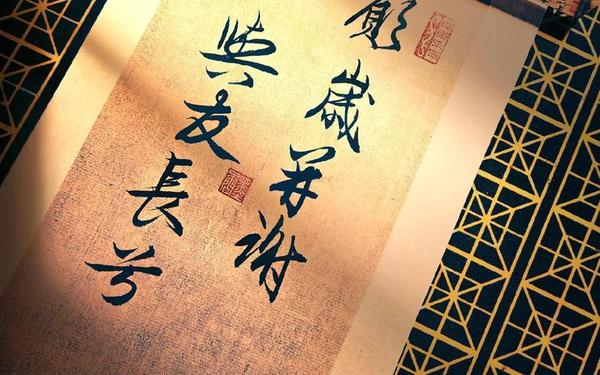 願歲并謝
與友長兮